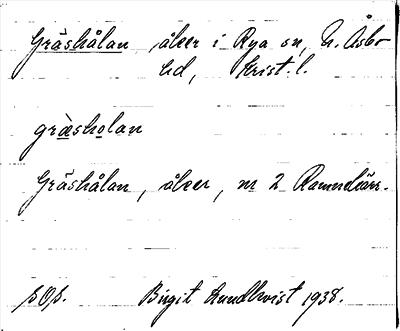 Gräshålan, åker i Rya sn, N. Åsbo
hd, Krist. l.
græsholan
Gräshålan, åker, nr 2 Ramnekärr.
s. Os. Birgit Lundkvist 1938.